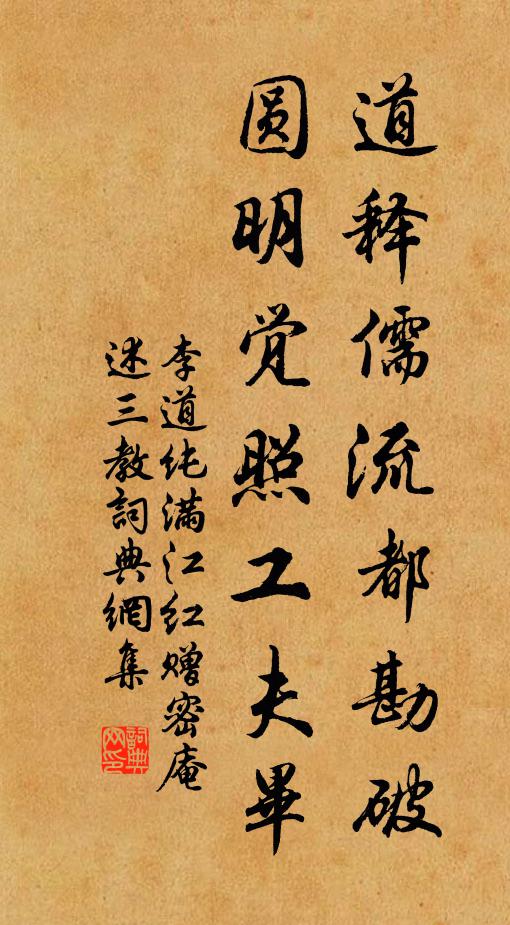 道释儒流都勘破
圆明觉照工夫畢
李道纯满江红赠密庵
述三教詞典網集
詞典网印